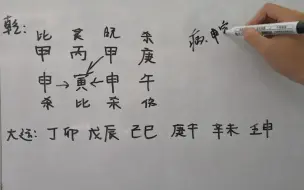 乾: 比 食 日元 杀
病: 甲
甲 丙 甲 庚
申→寅←申 午
杀 比 杀 伤
大运: 丁卯 戊辰 己巳 庚午 辛未 壬申